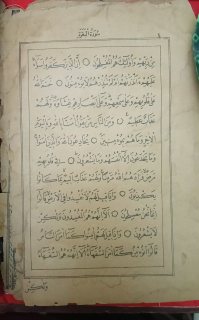 سُورَةُ الْبَقَرَةِ
مِنْ رَبِّهِمْ وَاُولٰٓئِكَ هُمُ الْمُفْلِحُونَ ۝ اِنَّ الَّذِينَ كَفَرُوا سَوَٓاءٌ
عَلَيْهِمْ ءَاَنْذَرْتَهُمْ اَمْ لَمْ تُنْذِرْهُمْ لَا يُؤْمِنُونَ ۝ خَتَمَ اللّٰهُ
عَلٰى قُلُوبِهِمْ وَعَلٰى سَمْعِهِمْ وَعَلٰٓى اَبْصَارِهِمْ غِشَاوَةٌ وَلَهُمْ
عَذَابٌ عَظِيمٌ ۝ وَمِنَ النَّاسِ مَنْ يَقُولُ اٰمَنَّا بِاللّٰهِ وَبِالْيَوْمِ
الْاٰخِرِ وَمَا هُمْ بِمُؤْمِنِينَ ۝ يُخَادِعُونَ اللّٰهَ وَالَّذِينَ اٰمَنُوا
وَمَا يَخْدَعُونَ اِلَّٓا اَنْفُسَهُمْ وَمَا يَشْعُرُونَ ۝ فِي قُلُوبِهِمْ
مَرَضٌ فَزَادَهُمُ اللّٰهُ مَرَضًا وَلَهُمْ عَذَابٌ اَلِيمٌ بِمَا كَانُوا
يَكْذِبُونَ ۝ وَاِذَا قِيلَ لَهُمْ لَا تُفْسِدُوا فِي الْاَرْضِ قَالُٓوا
اِنَّمَا نَحْنُ مُصْلِحُونَ ۝ اَلَٓا اِنَّهُمْ هُمُ الْمُفْسِدُونَ وَلٰكِنْ
لَا يَشْعُرُونَ ۝ وَاِذَا قِيلَ لَهُمْ اٰمِنُوا كَمَٓا اٰمَنَ النَّاسُ
قَالُٓوا اَنُؤْمِنُ كَمَٓا اٰمَنَ السُّفَهَٓاءُ اَلَٓا اِنَّهُمْ هُمُ السُّفَهَٓاءُ
وَلٰكِنْ